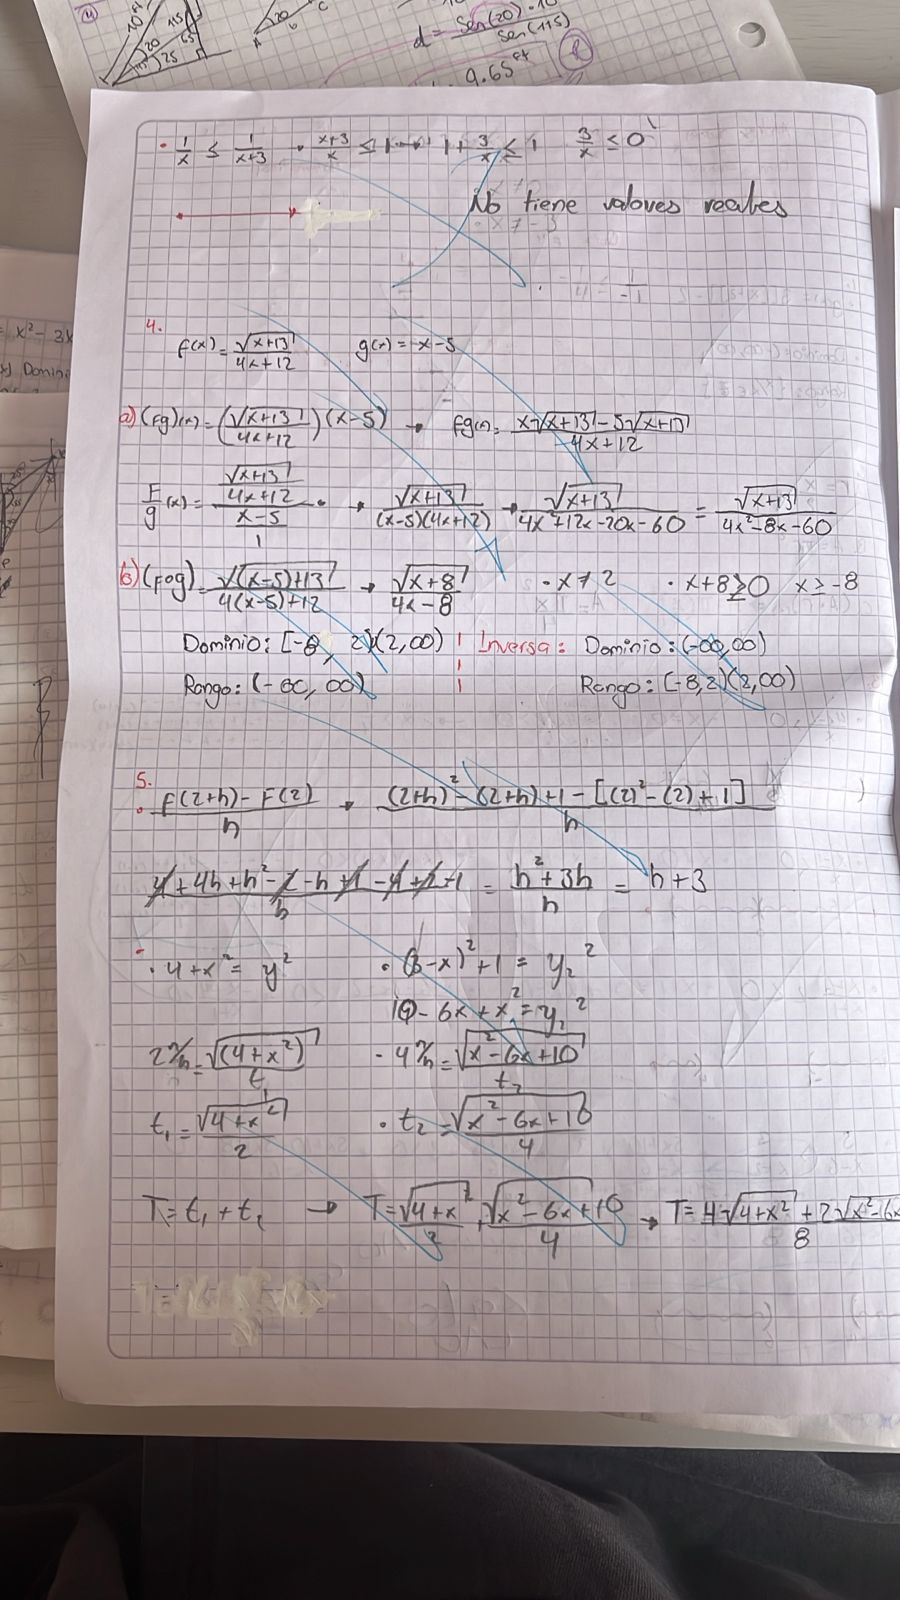 d = Sen(20) · 10 / Sen(115)
9.65 ft
(R)
10 ft
115
20
65
25
20
A
b
C
= x² - 3x
Domin
· 1/x ≤ 1/(x+3) · (x+3)/x ≤ 1 → 1 + 3/x ≤ 1 3/x ≤ 0
No tiene valores reales
4.
f(x) = √(x+13)/(4x+12) g(x) = x-5
a) (fg)(x) = (√(x+13)/(4x+12))(x-5) → fg(x) = (x√(x+13) - 5√(x+13))/(4x+12)
F/g (x) = (√(x+13)/(4x+12))/((x-5)/1) → √(x+13)/((x-5)(4x+12)) → √(x+13)/(4x²+12x-20x-60) = √(x+13)/(4x²-8x-60)
b) (fog) = √((x-5)+13)/(4(x-5)+12) → √(x+8)/(4x-8) · x≠2 · x+8≥0 x≥-8
Dominio: [-8, 2)(2,∞) Inversa: Dominio: (-∞,∞)
Rango: (-∞, ∞) Rango: [-8,2)(2,∞)
5.
· (F(2+h) - F(2))/h → ((2+h)² - (2+h) + 1 - [(2)² - (2) + 1])/h
(4 + 4h + h² - 2 - h + 1 - 4 + 2 - 1)/h = (h² + 3h)/h = h + 3
· 4 + x² = y² · (3-x)² + 1 = y₂²
10 - 6x + x² = y₂²
2 m/h = √(4+x²)/t₁ · 4 m/h = √(x²-6x+10)/t₂
t₁ = √(4+x²)/2 · t₂ = √(x²-6x+10)/4
T = t₁ + t₂ → T = √(4+x²)/2 + √(x²-6x+10)/4 → T = 4√(4+x²) + 2√(x²-6x / 8